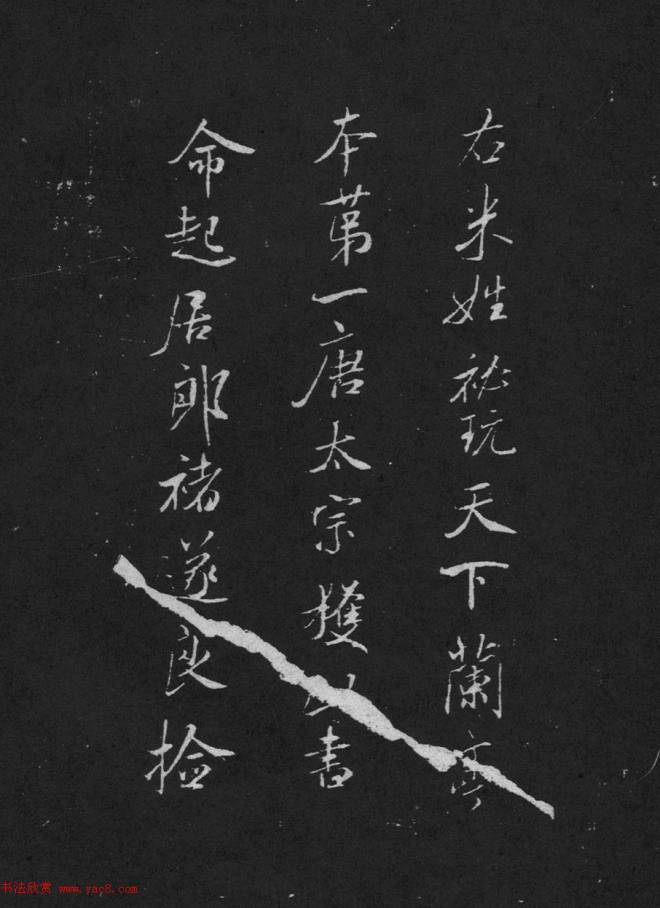 右米姓祕玩天下蘭亭
本第一唐太宗獲此書
命起居郎褚遂良捡
书法欣赏 www.yac8.com